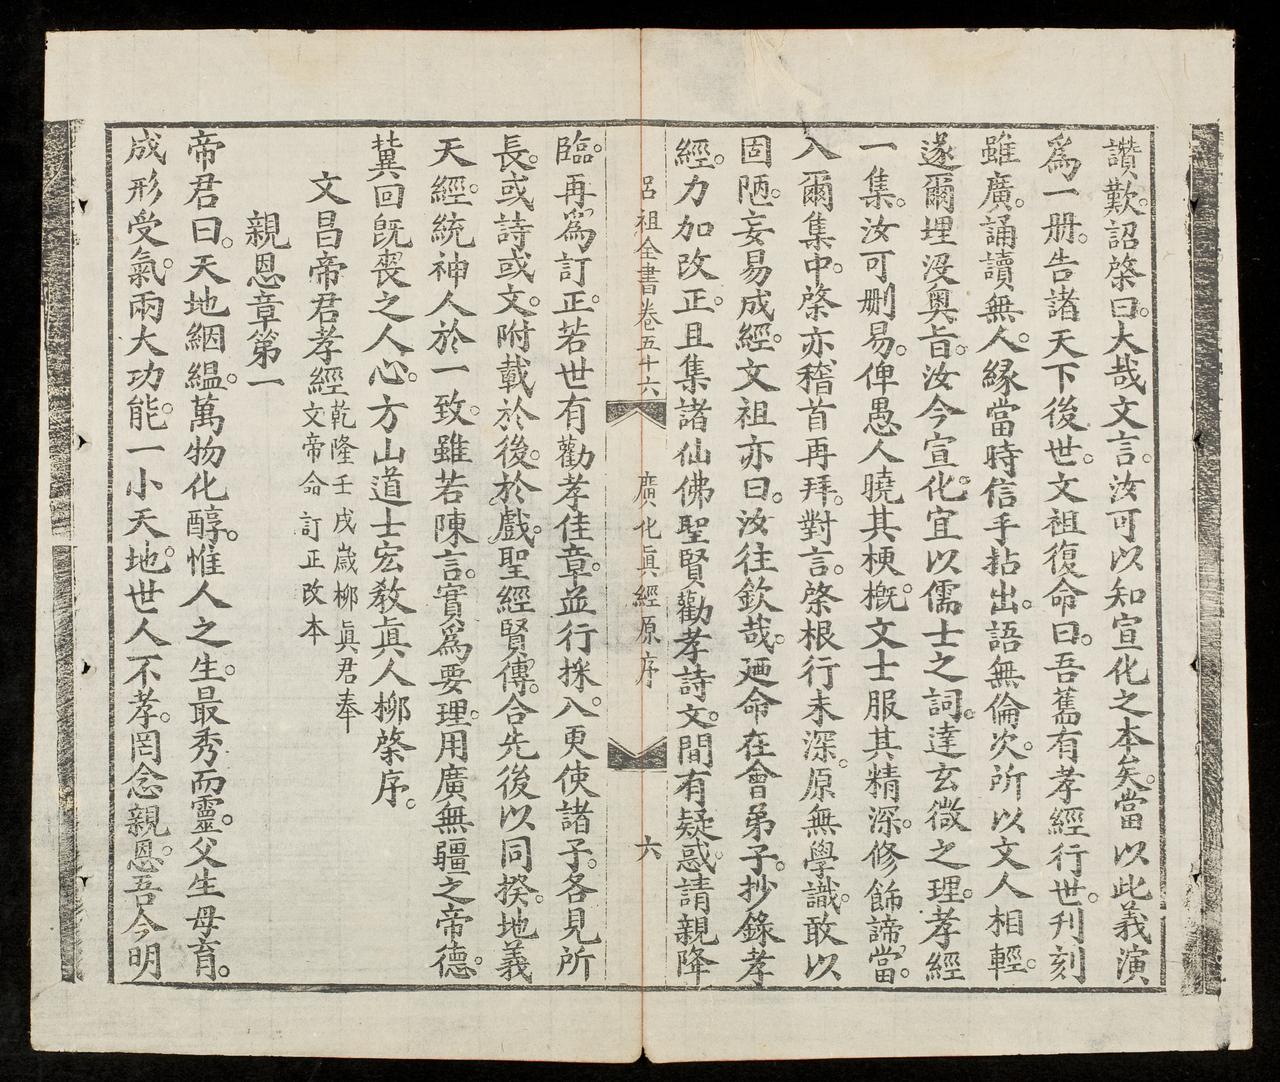 讚歎。詔棨曰。大哉文言。汝可以知宣化之本矣。當以此義演
爲一册。告諸天下後世。文祖復命曰。吾舊有孝經行世。刋刻
雖廣。誦讀無人。緣當時信手拈出。語無倫次。所以文人相輕。
遂爾埋沒奧旨。汝今宣化。宜以儒士之詞。達玄微之理。孝經
一集。汝可刪易。俾愚人曉其梗槪。文士服其精深。修飾諦當。
入爾集中。棨亦稽首再拜。對言。棨根行未深。原無學識。敢以
固陋。妄易成經。文祖亦曰。汝往欽哉。廼命在會弟子。抄錄孝
經。力加改正。且集諸仙佛聖賢勸孝詩文。間有疑惑。請親降
呂祖全書卷五十六 廣化眞經原序 六
臨。再爲訂正。若世有勸孝佳章。並行採入。更使諸子。各見所
長。或詩或文。附載於後。於戲。聖經賢傳。合先後以同揆。地義
天經。統神人於一致。雖若陳言。實爲要理。用廣無疆之帝德。
冀回旣喪之人心。方山道士宏教眞人柳棨序。
文昌帝君孝經 乾隆壬戌歲柳眞君奉
文帝命 訂正改本
親恩章第一
帝君曰。天地絪縕。萬物化醇。惟人之生。最秀而靈。父生母育。
成形受氣。兩大功能。一小天地。世人不孝。罔念親恩。吾今明